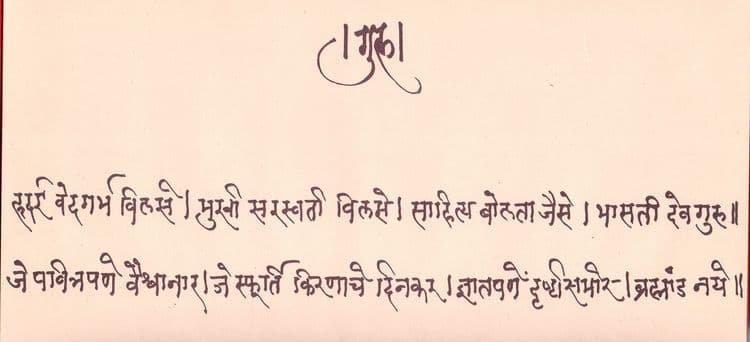 । गुरु ।
हृदयीं वेदगर्भ विलसे । मुखी सरस्वती विलसे । साहित्य बोलता जैसे । भासती देवगुरु ॥
जे पवित्रपणे वैश्वानार । जे स्फूर्ति किरणाचे दिनकर । ज्ञातपणें दृष्टीसमोर । ब्रह्मांड नये ॥